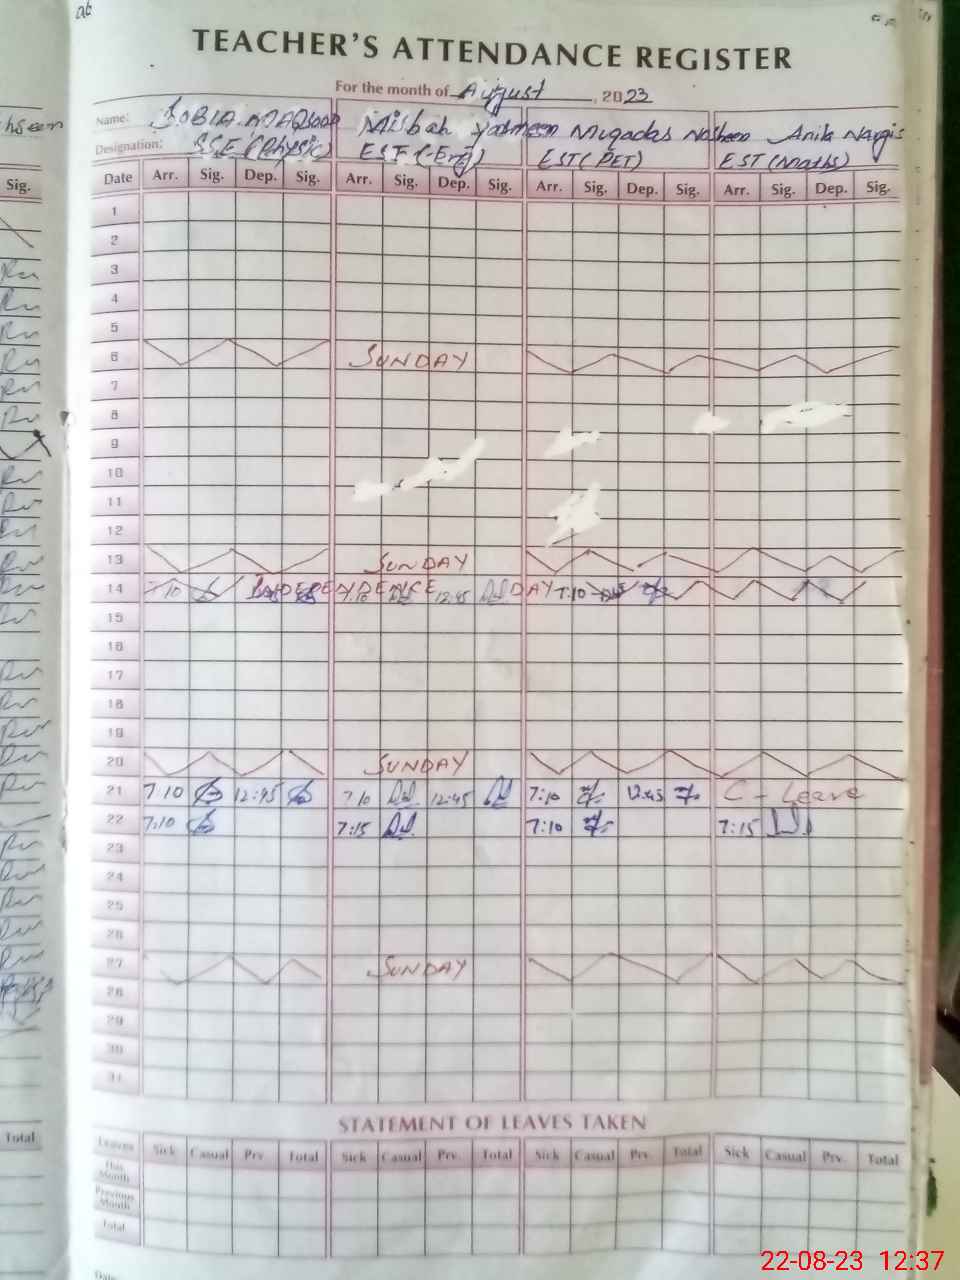 TEACHER'S ATTENDANCE REGISTER
For the month of August, 2023
Name: SOBIA MAQSOOD Misbah Yasmeen Muqadas Nosheen Anila Nargis
Designation: SSE (Physic) EST (Eng) EST (PET) EST (Maths)
Sig. Date Arr. Sig. Dep. Sig. Arr. Sig. Dep. Sig. Arr. Sig. Dep. Sig. Arr. Sig. Dep. Sig.
1
2
3
4
5
6 SUNDAY
7
8
9
10
11
12
13 SUNDAY
14 7:10 INDEPENDENCE 7:10 12:45 DAY 7:10
15
16
17
18
19
20 SUNDAY
21 7 10 12:45 7 10 12:45 7:10 12:45 C - Leave
22 7:10 7:15 7:10 7:15
23
24
25
26
27 SUNDAY
28
29
30
31
STATEMENT OF LEAVES TAKEN
Total Leaves Sick Casual Prv. Total Sick Casual Prv. Total Sick Casual Prv. Total Sick Casual Prv. Total
This Month
Previous Month
Total
22-08-23 12:37